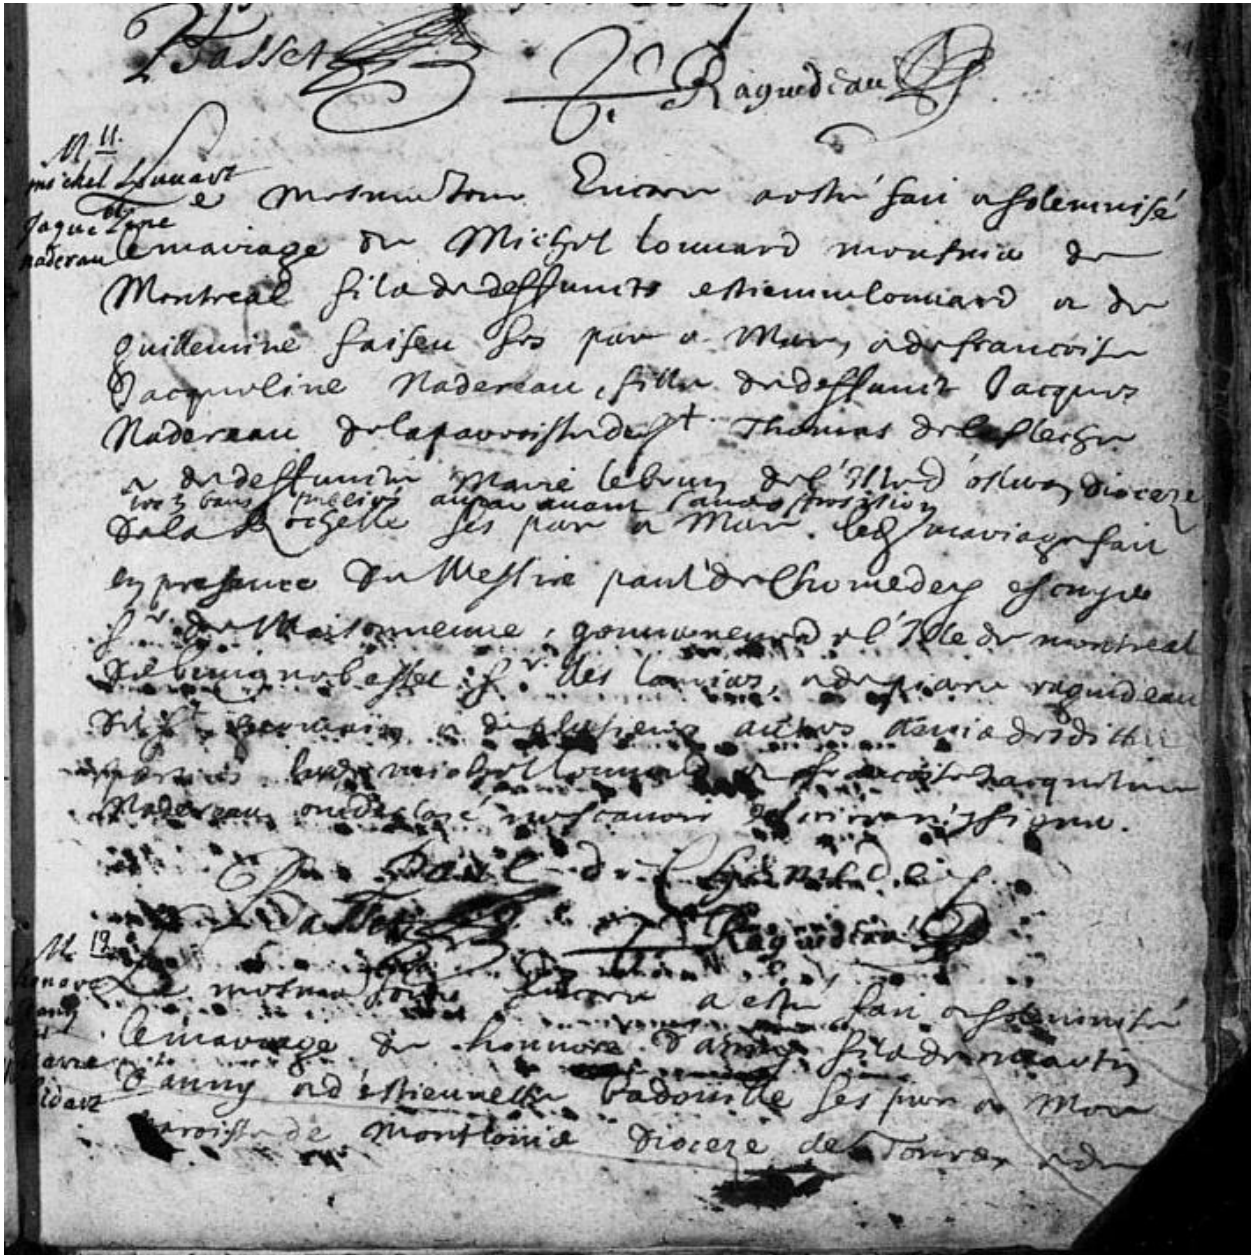 Basset Raguideau
M 11.
michel Louuart
et
Jaqueline
naderau
Le mesme Jour Encore a esté fait et solemnisé
le mariage de Michel louuard meusnier de
Montreal fils de deffuncts estienne louuard et de
guillemine faiseu ses pere et Mere, et de francoise
Jacqueline Nadereau, fille de deffunct Jacques
Nadereau de la parroisse de St Thomas de la flesche
et de deffuncte Marie lebrun de l'Isle d'olleron Dioceze
trois bans publiés auparauant sans opposition
de la Rochelle ses pere et Mere. led. mariage fait
en presence de Messire paul de Chomedey escuyer
sr de Maisonneuue, gouuerneur de l'Isle de montreal
de benigne basset sr des lauriers, et de pierre raguideau
dit St germain et de plusieurs autres amis desdittes
parties led. michel louuard et francoise Jacqueline
Nadereau ont declaré ne scauoir escrire ny signer.
Paul de Chomedey
Basset Raguideau
M. 12.
honoré
dany
et
Marie
bidart
Le mesme Jour Encore a esté fait et solemnisé
le mariage de honnoré Danny fils de martin
Danny et d'estiennette badouille ses pere et Mere
paroisse de Montlouis Dioceze de Tours, et de